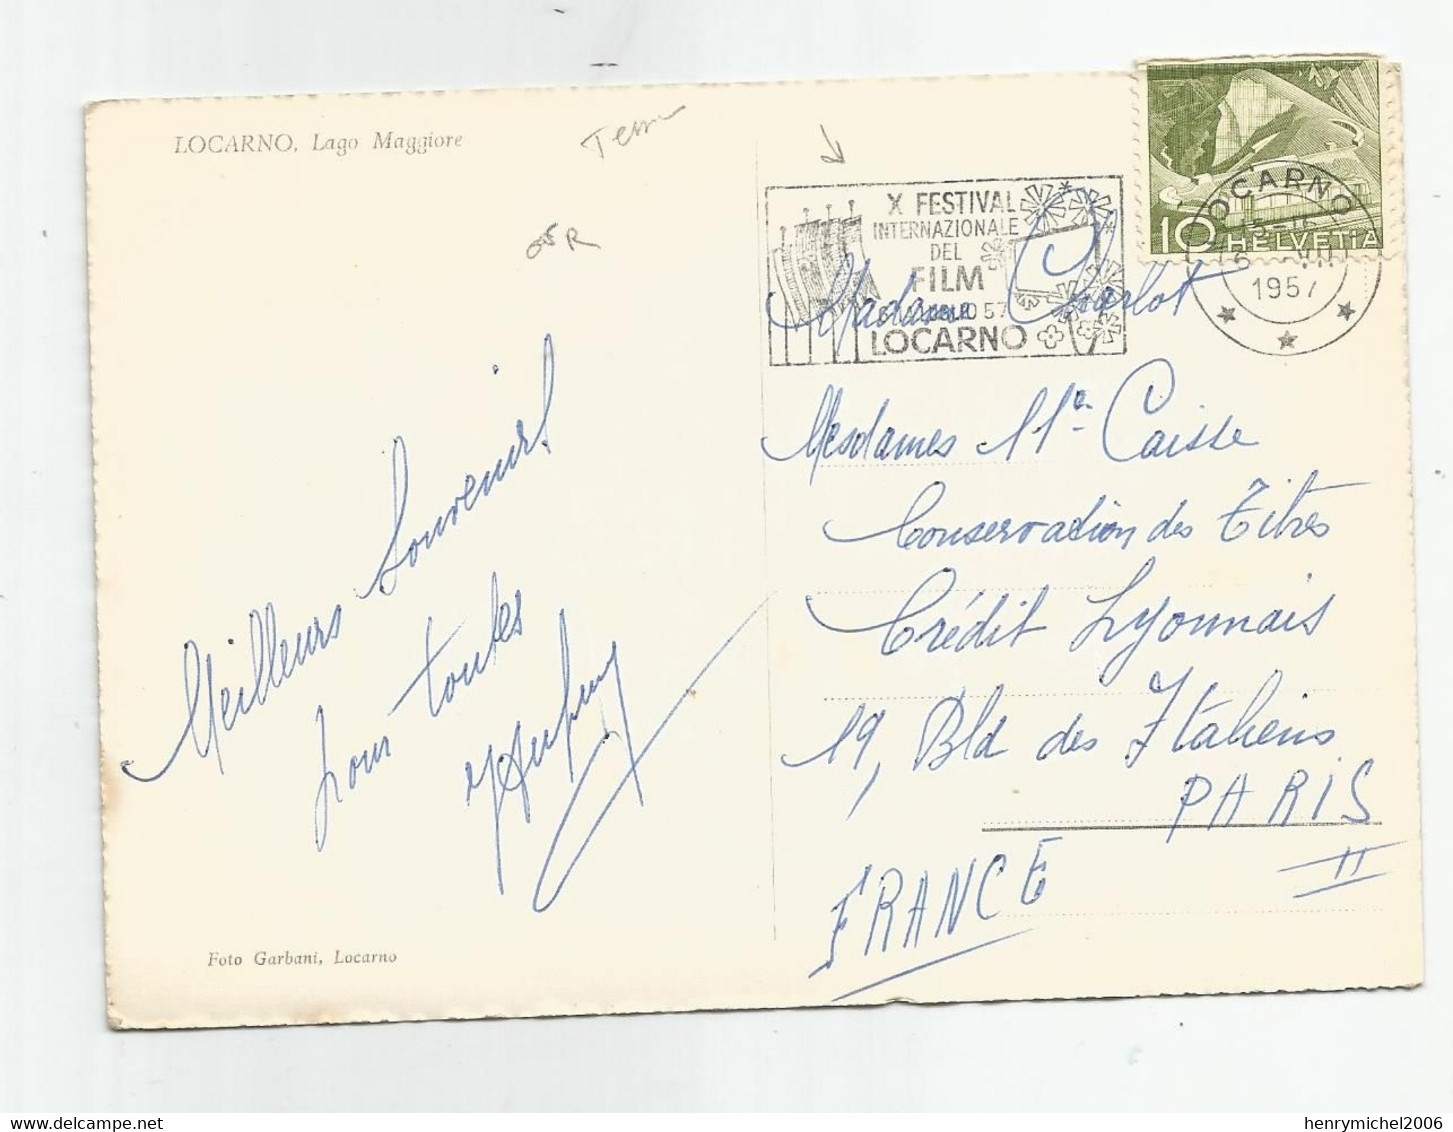 LOCARNO, Lago Maggiore
X FESTIVAL
INTERNAZIONALE
DEL
FILM
LOCARNO
LOCARNO
1957
10 HELVETIA
Madame Charlot
Mesdames Caisse
Conservation des Titres
Crédit Lyonnais
19, Bld des Italiens
PARIS
II
FRANCE
Meilleurs Souvenirs
pour toutes
Foto Garbani, Locarno
henrymichel2006